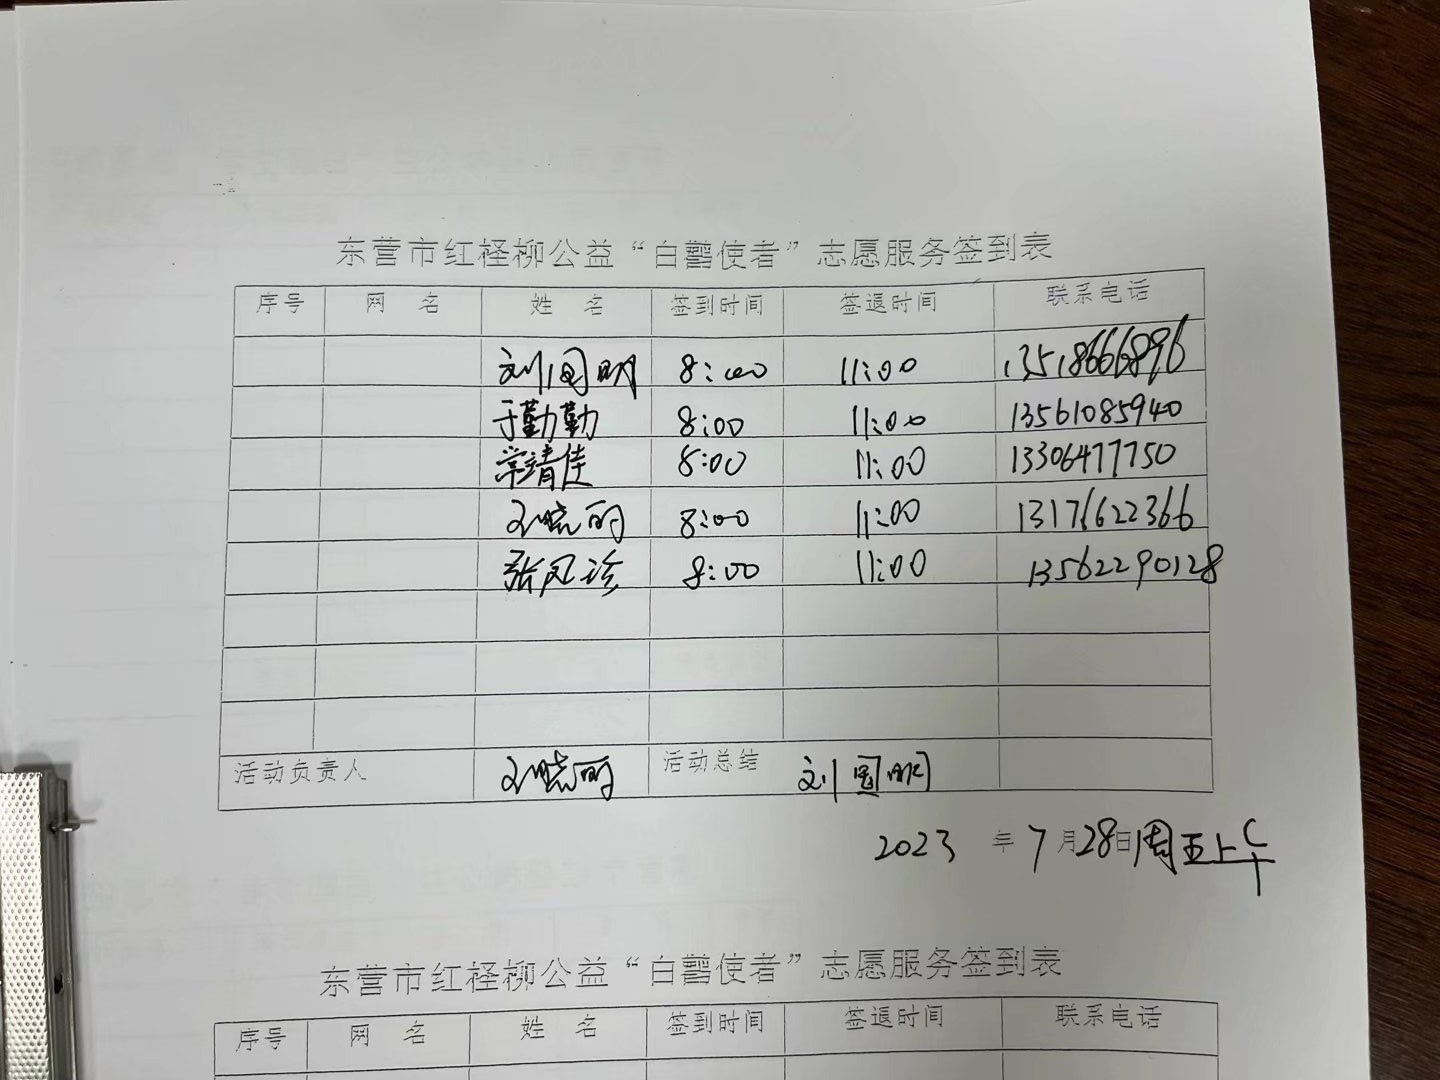 东营市红柽柳公益“白鹳使者”志愿服务签到表
序号 网 名 姓 名 签到时间 签退时间 联系电话
刘国明 8:00 11:00 13518666896
于勤勤 8:00 11:00 13561085940
常靖佳 8:00 11:00 13306477750
王晓丽 8:00 11:00 13176622366
张风珍 8:00 11:00 13562290128
活动负责人 王晓丽 活动总结 刘国明
2023 年 7月28日周五上午
东营市红柽柳公益“白鹳使者”志愿服务签到表
序号 网 名 姓 名 签到时间 签退时间 联系电话